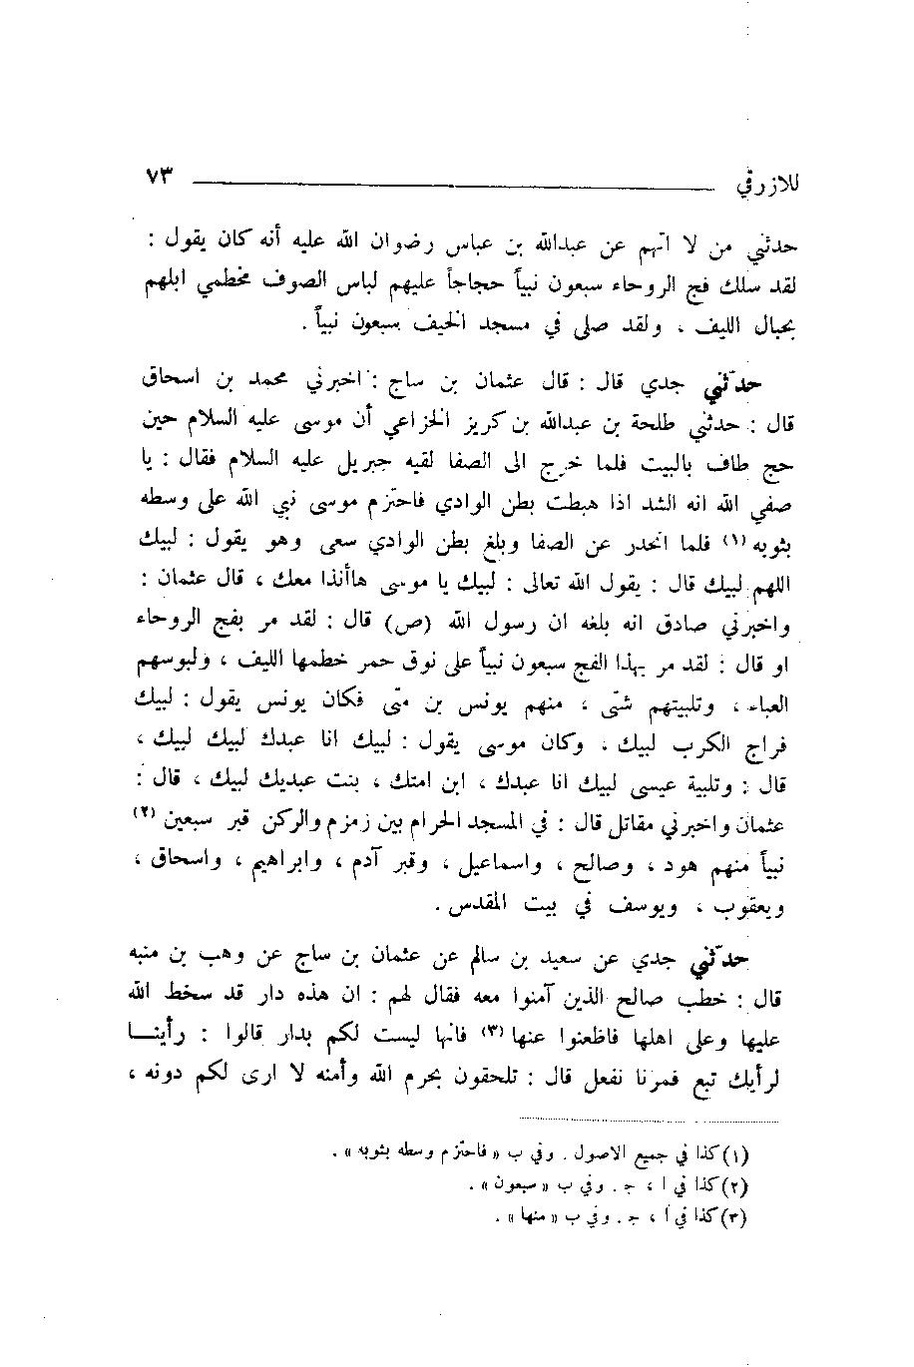 للازرقي ٧٣
حدثني من لا اتهم عن عبدالله بن عباس رضوان الله عليه أنه كان يقول :
لقد سلك فج الروحاء سبعون نبياً حجاجاً عليهم لباس الصوف مخطمي ابلهم
بحبال الليف ، ولقد صلى في مسجد الخيف سبعون نبياً .
حدثني جدي قال : قال عثمان بن ساج : اخبرني محمد بن اسحاق
قال : حدثني طلحة بن عبدالله بن كريز الخزاعي أن موسى عليه السلام حين
حج طاف بالبيت فلما خرج الى الصفا لقيه جبريل عليه السلام فقال : يا
صفي الله انه الشد اذا هبطت بطن الوادي فاحتزم موسى نبي الله على وسطه
بثوبه (١) فلما انحدر عن الصفا وبلغ بطن الوادي سعى وهو يقول : لبيك
اللهم لبيك قال : يقول الله تعالى : لبيك يا موسى هاأنذا معك ، قال عثمان :
واخبرني صادق انه بلغه ان رسول الله (ص) قال : لقد مر بفج الروحاء
او قال : لقد مر بهذا الفج سبعون نبياً على نوق حمر خطمها الليف ، ولبوسهم
العباء ، وتلبيتهم شتّى ، منهم يونس بن متّى فكان يونس يقول : لبيك
فراج الكرب لبيك ، وكان موسى يقول : لبيك انا عبدك لبيك لبيك ،
قال : وتلبية عيسى لبيك انا عبدك ، ابن امتك ، بنت عبديك لبيك ، قال :
عثمان واخبرني مقاتل قال : في المسجد الحرام بين زمزم والركن قبر سبعين (٢)
نبياً منهم هود ، وصالح ، واسماعيل ، وقبر آدم ، وابراهيم ، واسحاق ،
ويعقوب ، ويوسف في بيت المقدس .
حدثني جدي عن سعيد بن سالم عن عثمان بن ساج عن وهب بن منبه
قال : خطب صالح الذين آمنوا معه فقال لهم : ان هذه دار قد سخط الله
عليها وعلى اهلها فاظعنوا عنها (٣) فانها ليست لكم بدار قالوا : رأينـــا
لرأيك تبع فمرنا نفعل قال : تلحقون بحرم الله وأمنه لا ارى لكم دونه ،
(١) كذا في جميع الاصول . وفي ب « فاحتزم وسطه بثوبه » .
(٢) كذا في ا ، ج . وفي ب « سبعون » .
(٣) كذا في أ ، ج . وفي ب « منها » .